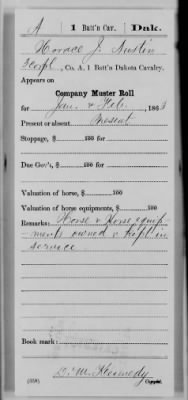 A | 1 Batt'n Cav. | Dak.
Horace J. Austin
Corpl, Co. A, 1 Batt'n Dakota Cavalry.
Appears on
Company Muster Roll
for Jan. & Feb., 1863
Present or absent Present
Stoppage, $ 100 for
Due Gov't, $ 100 for
Valuation of horse, $ 100
Valuation of horse equipments, $ 100
Remarks: Horse & Horse equip-
ments owned & kept in
service
Book mark:
D. M. Kennedy
(358) Copyist.